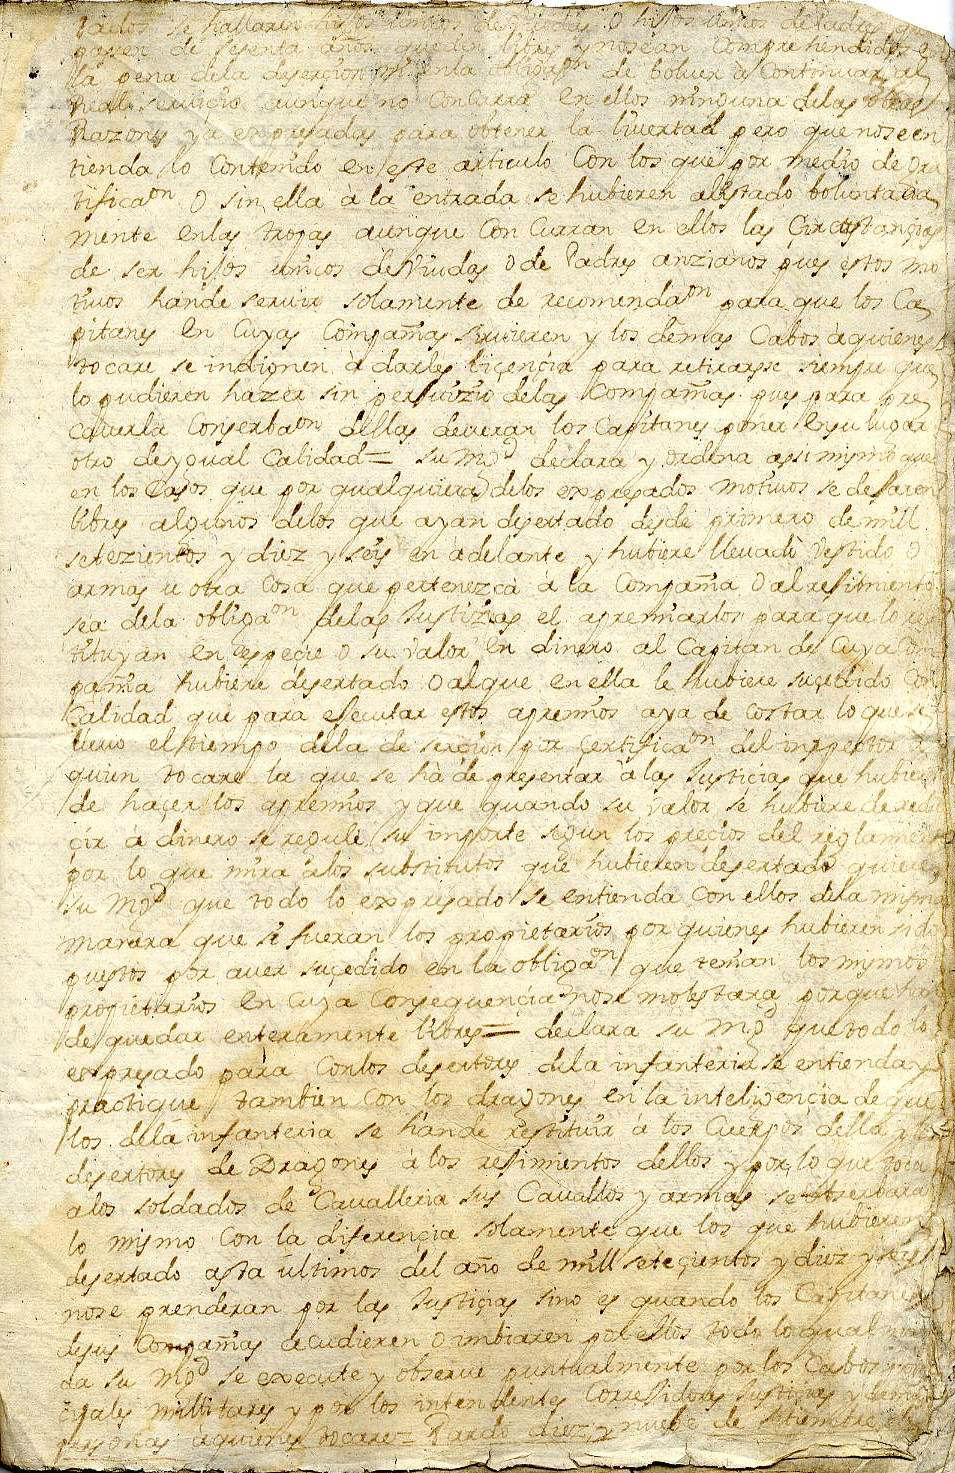 se hallaren hijos unicos de Viudas o hijos unicos de Padres que
pasen de sesenta años queden libres y nosean Comprehendidos en
la pena dela deserçion ni enla obligaon de bolver a Continuar el
Real serviçio aunque no Concurra en ellos ninguna delas otras
Razones ya expresadas para obtener la livertad pero que nose en
tienda lo Contenido en este articulo Con los que por medio de Gra
tificaon O sin ella à la entrada se hubieren alistado boluntaria
mente enlas tropas aunque Con Curran en ellos las Çircustançias
de ser hijos unicos de Viudas O de Padres anzianos pues estos mo
tivos hande servir solamente de recomendaon para que los Ca
pitanes en Cuyas Compañias sirvieren y los demas Cabos àquienes
tocare se inclinen à darles liçençia para retirarse siempre que
lo pudieren hazer sin perjuizio delas Compañias pues para pre
caver la Conserbaon dellas deveran los Capitanes poner en su lugar
otro de ygual Calidad = su Mgd declara y ordena assimismo que
en los Casos que por qualquiera delos expresados motivos se dejaren
libres algunos delos que ayan desertado desde primero de mill
setezientos y diez y seis en adelante y hubiere llevado Vestido O
armas u otra Cosa que pertenezca a la Compañia O al rejimiento
sea dela obligaon delas Justizias el apremiarlos para que lo res
tituyan en espeçie O su Valor en dinero al Capitan de Cuya Com
pañia hubiere desertado O alque en ella le hubiere suçedido Con
Calidad que para ejecutar estos apremios aya de Costar lo que se
llevo el tiempo dela deserçion por Çertificaon del inspector a
quien tocare la que se hà de presentar à las Justiçias que hubieren
de haçer los apremios y que quando su Valor se hubiere de redu
çir a dinero se regule su importe segun los preçios del reglamento
por lo que mira alos substitutos que hubieren desertado quiere
su Mgd que todo lo expresado se entienda con ellos dela misma
manera que si fueran los propietarios por quienes hubieren sido
puestos por aver suçedido en la obligaon que tenian los mismos
propietarios en Cuya Consequençia nose molestara porque han
de quedar enteramente libres = declara su Mgd que todo lo
expresado para Conlos desertores dela infanteria se entienda y
practique tambien Con los dragones en la inteligençia de que
los dela infanteria se hande restituir à los Cuerpos della y los
desertores de Dragones à los rejimientos dellos y por lo que toca
alos soldados de Cavalleria sus Cavallos y armas se observara
lo mismo Con la diferençia solamente que los que hubieren
desertado asta ultimos del año de mill seteçientos y diez y seis
nose prenderan por las Justiçias sino es quando los Capitanes
desus Compañias acudieren O imbiaren por ellos todo lo qual man
da su Mgd se execute y observe puntualmente por los Cabos
militares y por los intendentes Corregidores Justiçias y demas
personas aquienes tocare = Pardo diez y nueve de setiembre de